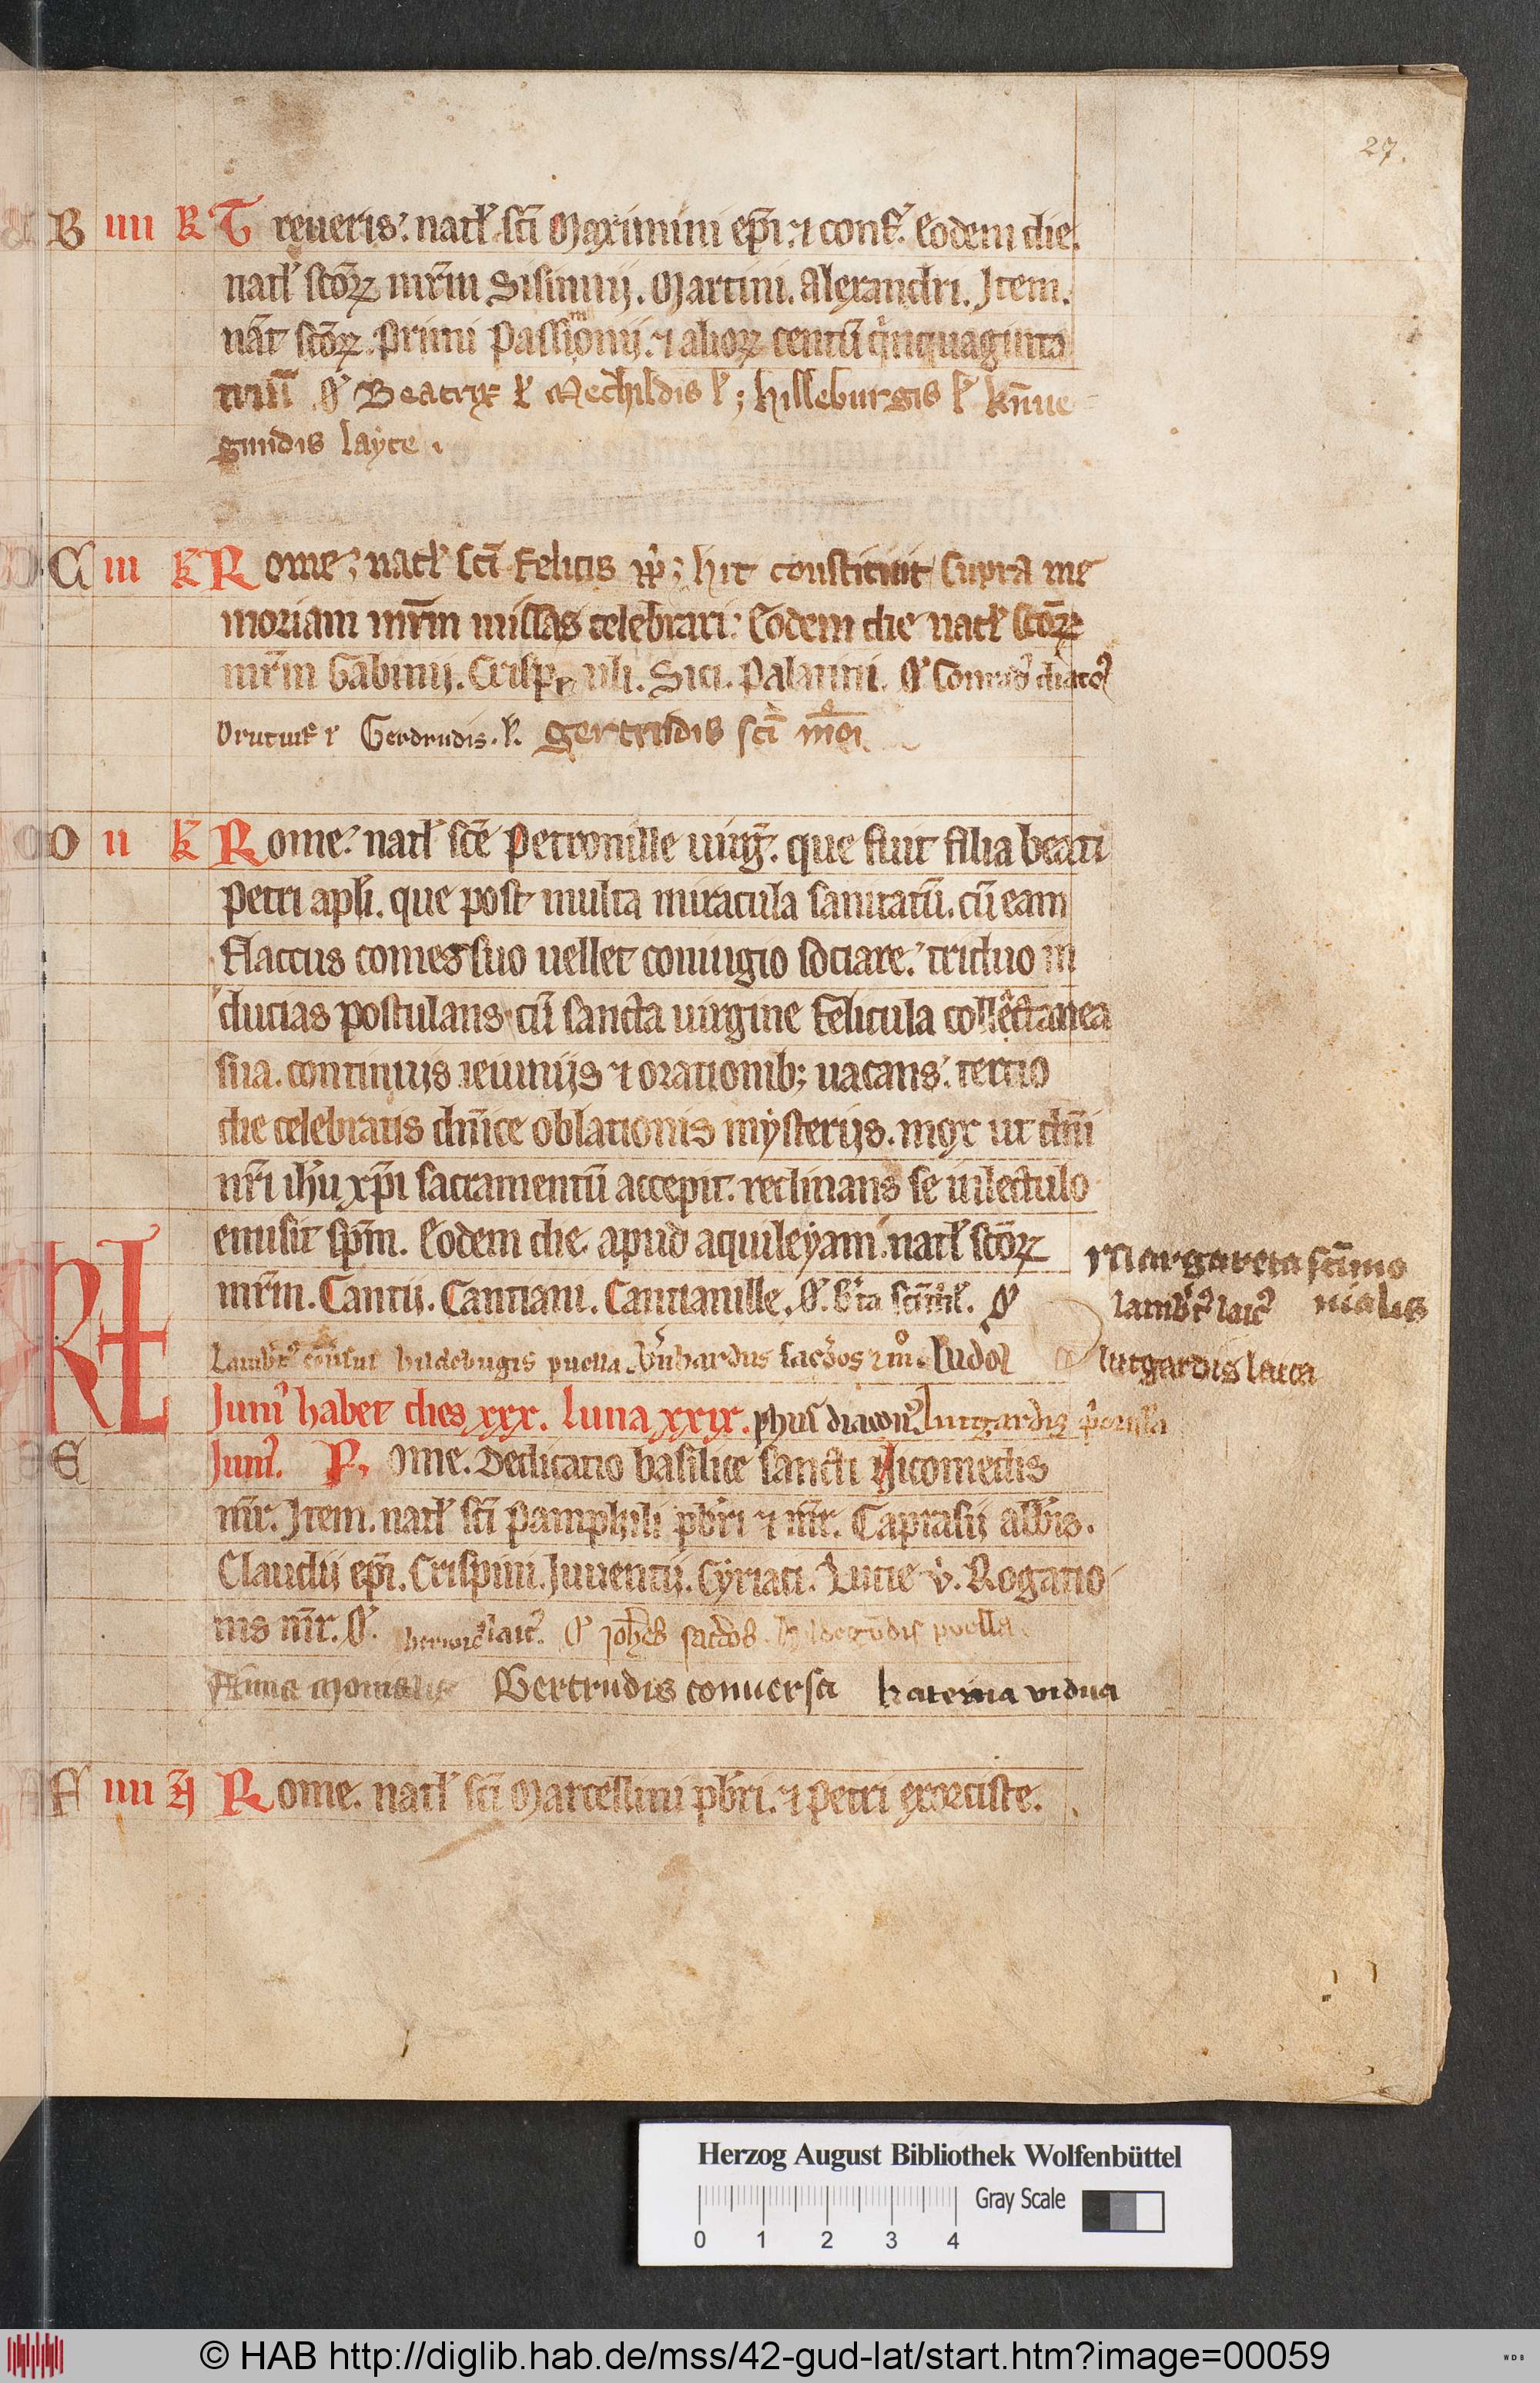 27.
B iiii k Treueris. natł sc̄i Maximini ep̄i. ⁊ conf̄. Eodem die.
natł sc̄oꝝ mr̄m Sisinnij. Martiri. Alexandri. Item.
nāt sc̄oꝝ. Primi Passionij. ⁊ alioꝝ centū q̇nquaginta
triū O' Beatrix l' Mechildis l' ; hilleburgis l' kūne
gundis layce .
C iii k Rome; natł sc̄i felicis pp̄; hic constituit supra me
moriam mr̄m missas celebrari. Eodem die natł sc̄oꝝ
mr̄m Gabinij. Crispuli. Sici. Palatini. O' Conrad' diaco'
Gerdrudis. l'. gertrudis sc̄i
D ii k Rome. natł sc̄e Petronille uirḡ. que fuit filia beati
Petri apłi. que post multa miracula sanitatū. cū eam
flaccus comes suo uellet coniugio sociare. triduo in
ducias postulans cū sancta uirgine felicula collectanea
sua. continuis ieiunijs ⁊ orationib; uacans. tercio
die celebratis dn̄ice oblationis mysterijs. mox ut dn̄i
nr̄i ih̄u xp̄i sacramentū accepit. reclinans se in lectulo
emisit sp̄m. Eodem die. apud aquileyam. natł sc̄oꝝ
mr̄m. Cantii. Cantiani. Cantianille. O'. b'ta sc̄im̄l'. O'
Margareta sc̄imo
nialis
lamb't' laic'
Lamb't' hildebugis puella. b'nhardus sac'dos ⁊ m̊. ludol
lutgardis laica
KL Juni' habet dies xxx. luna xxix. phus diacon'. lutgardis
E Juni'. Rome. Dedicatio basilice sancti Nicomedis
mr̄. Item. natł sc̄i Pamphili pb'ri ⁊ mr̄. Caprasii abb̄is.
Claudii ep̄i. Crispini. Juuentii. Cyriaci. Lucie v̇. Rogatio
nis mr̄. O'. laic'. O' ioh̄es sac'dos. hildegūdis puella.
Anna monialis Gertrudis conuersa katerina vidua
F iiii N Rome. natł sc̄i Marcellini pb'ri. ⁊ Petri exorciste.
Herzog August Bibliothek Wolfenbüttel
Gray Scale
0 1 2 3 4
© HAB http://diglib.hab.de/mss/42-gud-lat/start.htm?image=00059
WDB